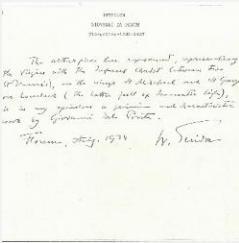 GIOVANNI DA PONTE
The altarpiece here represented, representing
the Virgin with the Infant Christ between two
, on the wings St Michael and St George
on horseback ( the latter full of romantic life),
is in my opinion a genuine and characteristic
work by Giovanni dal Ponte.
Florence, Aug. 1934 W. Suida